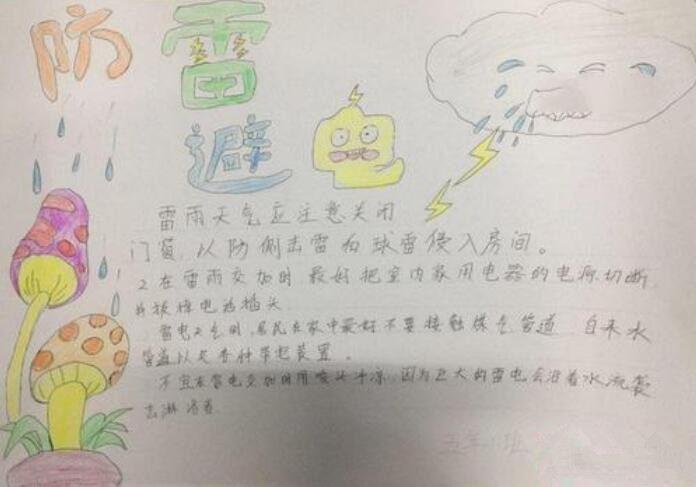 防雷
避
雷雨天气应注意关闭
门窗，以防侧击雷和球雷侵入房间。
2 在雷雨交加时，最好把室内家用电器的电源切断
并拔掉电话插头
雷电天气时，居民在家中最好不要接触煤气管道、自来水
管道以及各种带电装置。
不宜在雷电交加时用喷头冲凉，因为巨大的雷电会沿着水流袭
击淋浴者
五年 班